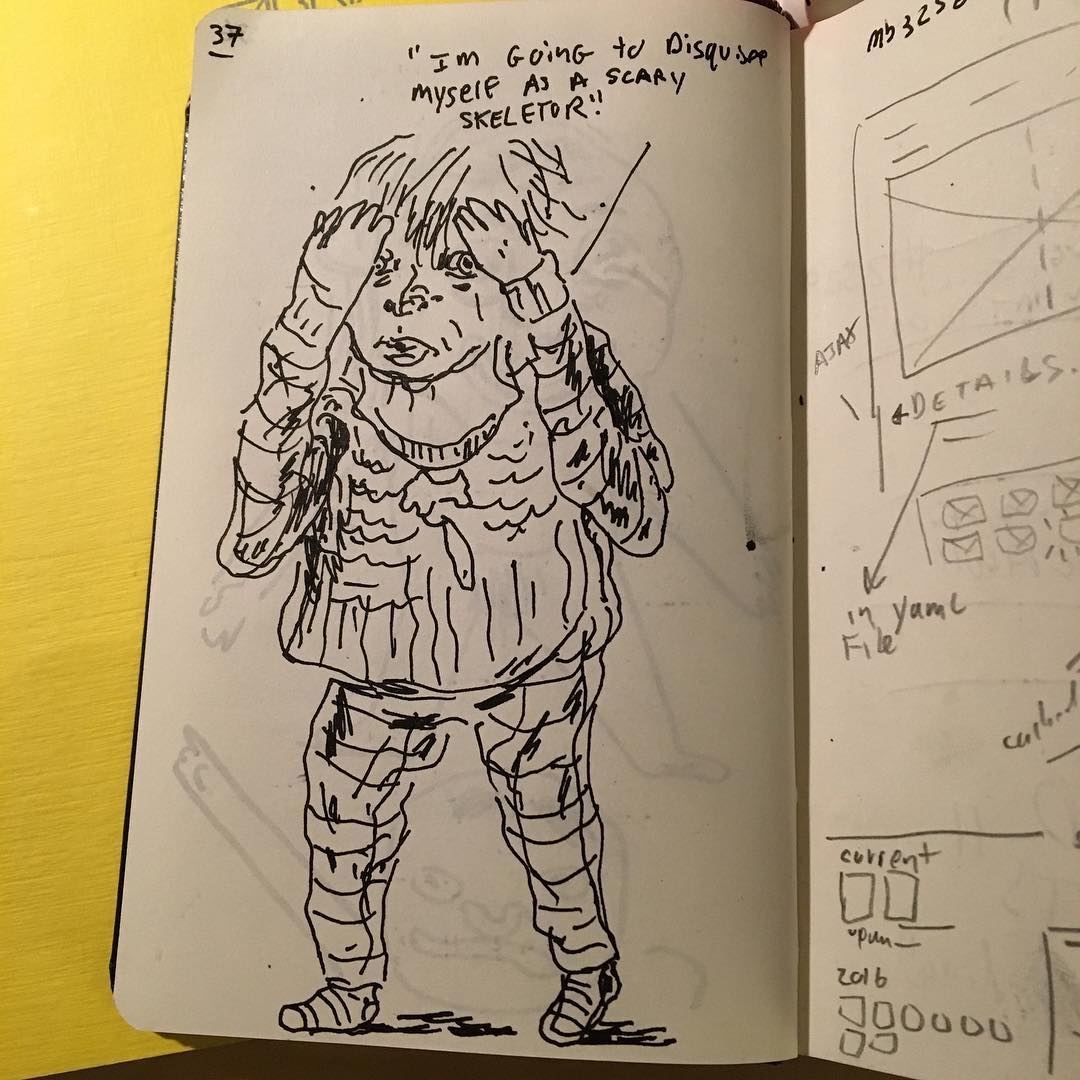 37
"I'm GOING to DisquisE
myself AS A SCARY
SKELETOR"!
mb 3230
AJAX
DETAILS.
in yaml
File
current
2016